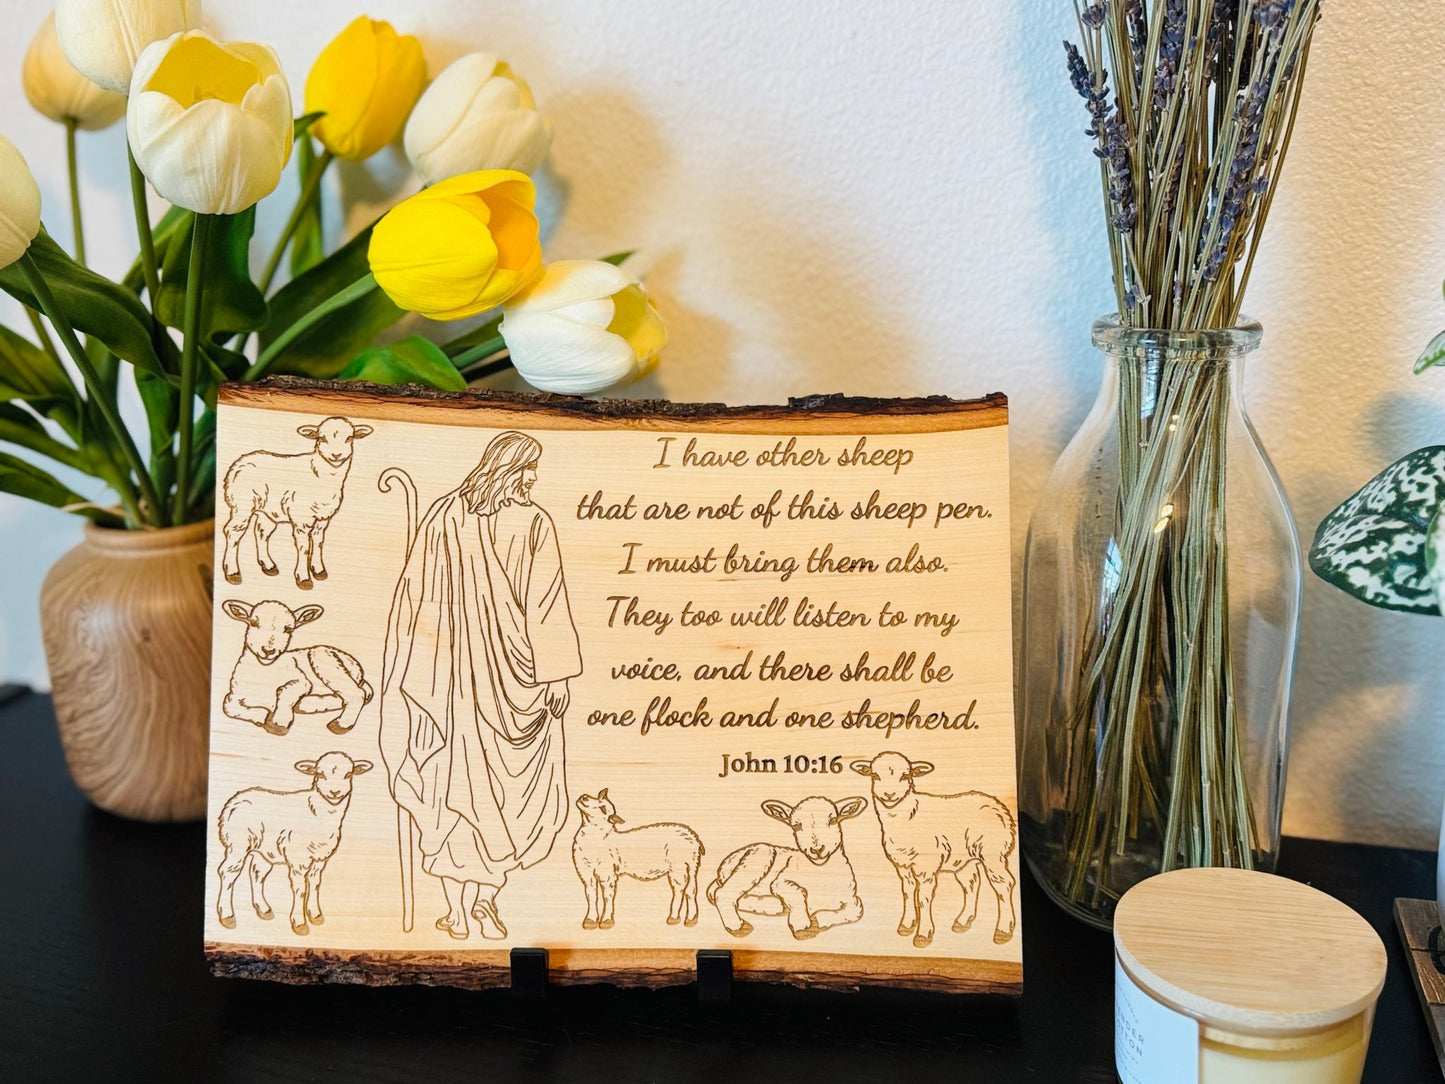 I have other sheep
that are not of this sheep pen.
I must bring them also.
They too will listen to my
voice, and there shall be
one flock and one shepherd.
John 10:16